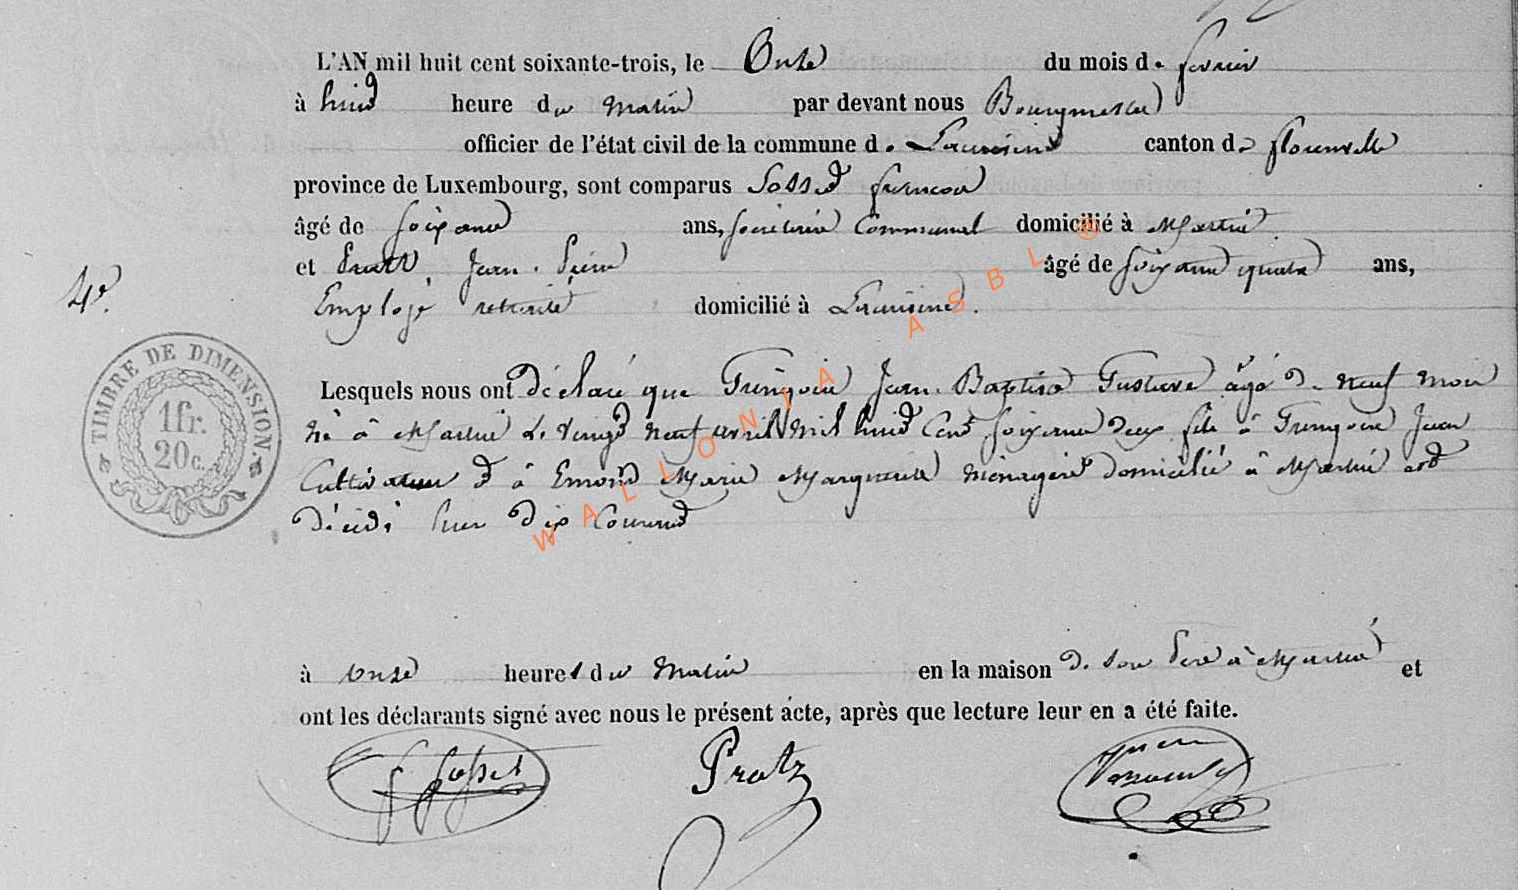 L'AN mil huit cent soixante-trois, le Onze du mois de fevrier
à huit heure du Matin par devant nous Bourgmestre
officier de l'état civil de la commune de canton de florenville
province de Luxembourg, sont comparus Sosset francois
âgé de Soixante ans, Secretaire Communal domicilié à Martué
et Pratz Jean Pierre âgé de Soixante quatre ans,
4e.
Employé retraité domicilié à
TIMBRE DE DIMENSION.
1fr.
20c.
Lesquels nous ont déclaré que Jean Baptiste Gustave âgé de neuf mois
né à Martué le vingt neuf avril mil huit cent soixante deux fils à Jean
Cultivateur et à Emond Marie Marguerite ménagère domicilié à Martué est
décédé hier dix Courant
à onze heures du Matin en la maison de son Père à Martué et
ont les déclarants signé avec nous le présent acte, après que lecture leur en a été faite.
f Sosset Pratz
WALLONIA ASBL ®